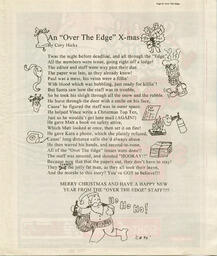 Page 8/ Over The Edge
An "Over The Edge" X-mas
By Cory Hicks
Twas the night before deadline, and all through the "Edge"
All the members were tense, going right off a ledge!
The editor and staff were way past their due
The paper was late, as they already knew!
Paul was a mess, his veins were a fillin'
With blood which was bubbling, just ready for killin'!
But Santa saw how the staff was in trouble,
So he took his sleigh through the snow and the rubble.
He burst through the door with a smile on his face,
Cause' he figured the staff was in some space,
He helped Vince write a Christmas Top Ten,
Just so he wouldn't get hate mail (AGAIN!)
He gave Matt a book on safety attire,
Which Matt looked at once, then set it on fire!
He gave Kara a phone, which she plainly refused,
Cause' long distance calls she'd always abuse
He then waved his hands, and second-to-none,
All of the "Over The Edge" issues were done!!
The staff was stunned, and shouted "HOORAY!!"
Because now that the papers out, they don't have to stay!
They and the jolly fat man, as they all took their leave,
And the morale to this story? You've GOT to believe!!!
MERRY CHRISTMAS AND HAVE A HAPPY NEW
YEAR FROM THE "OVER THE EDGE" STAFF!!!!
Ho Ho Ho!